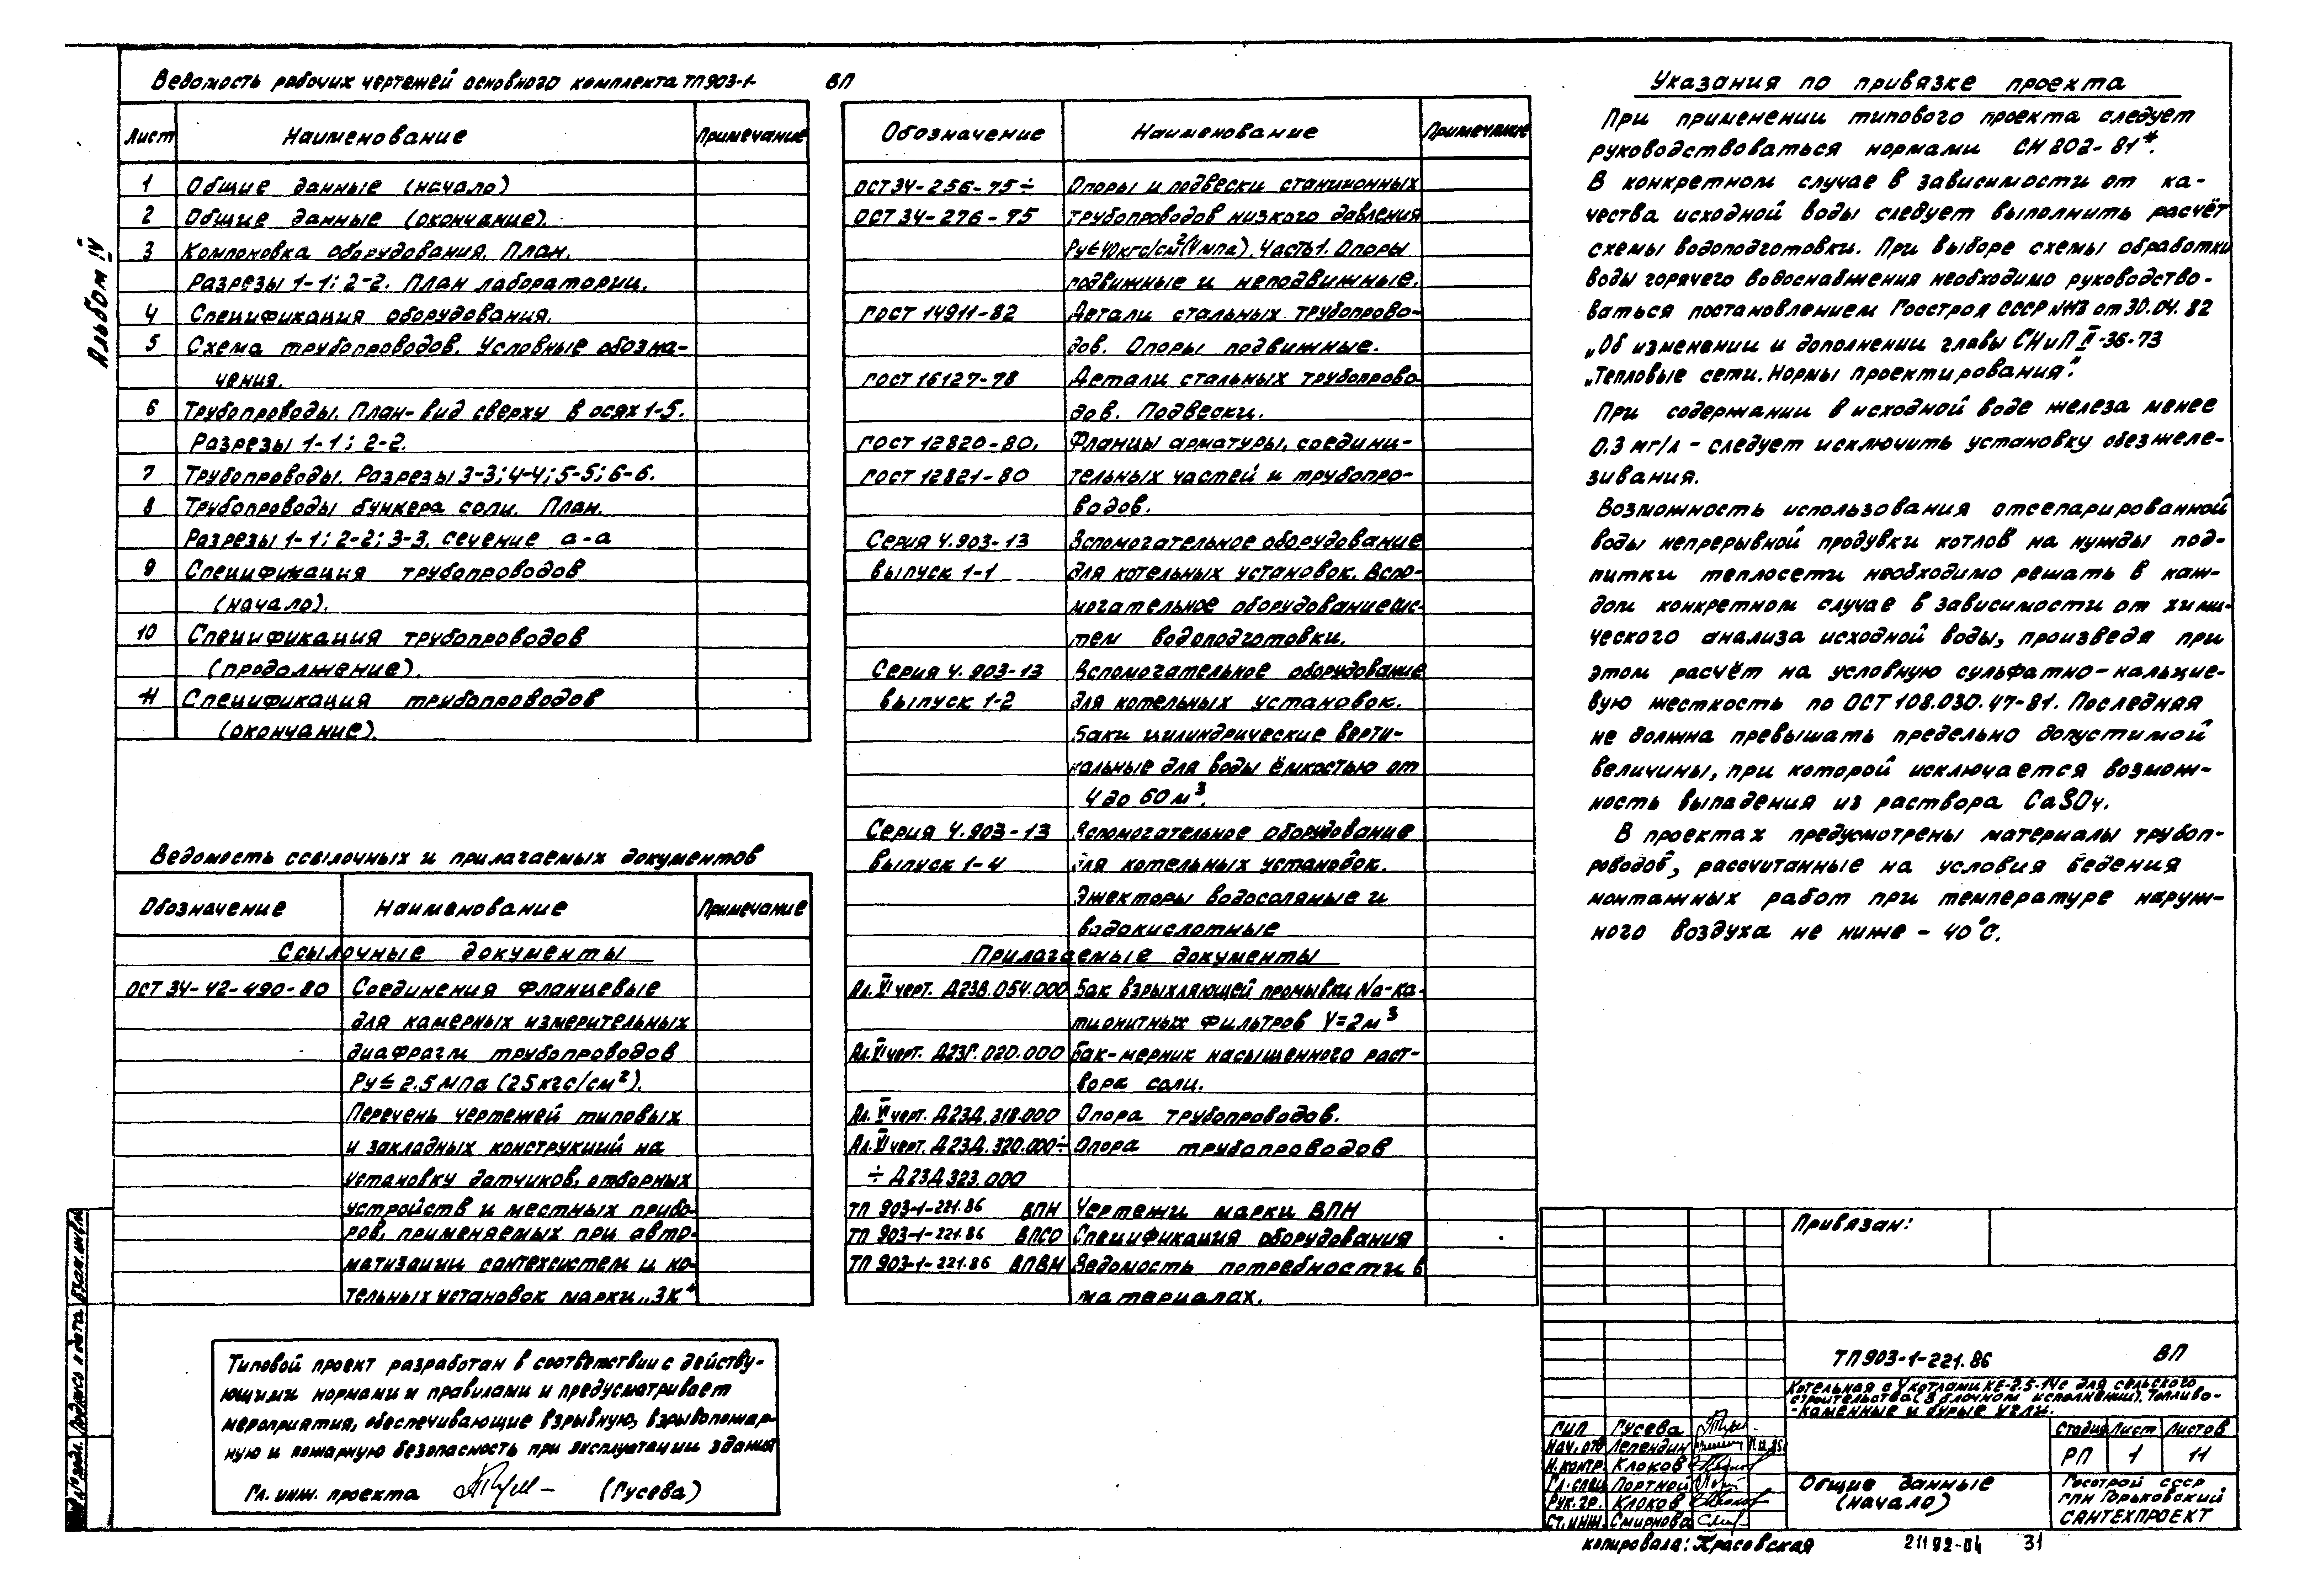 Альбом IV
Ведомость рабочих чертежей основного комплекта ТП903-1- ВП
Лист Наименование Примечание
1 Общие данные (начало)
2 Общие данные (окончание).
3 Компоновка оборудования. План.
Разрезы 1-1; 2-2. План лаборатории.
4 Спецификация оборудования.
5 Схема трубопроводов. Условные обозна-
чения.
6 Трубопроводы. План-вид сверху в осях 1-5.
Разрезы 1-1; 2-2.
7 Трубопроводы. Разрезы 3-3; 4-4; 5-5; 6-6.
8 Трубопроводы бункера соли. План.
Разрезы 1-1; 2-2; 3-3. сечение а-а
9 Спецификация трубопроводов
(начало).
10 Спецификация трубопроводов
(продолжение).
11 Спецификация трубопроводов
(окончание).
Ведомость ссылочных и прилагаемых документов
Обозначение Наименование Примечание
Ссылочные документы
ОСТ 34-42-490-80 Соединения фланцевые
для камерных измерительных
диафрагм трубопроводов
Ру≤2.5мпа (25кгс/см²).
Перечень чертежей типовых
и закладных конструкций на
установку датчиков, отборных
устройств и местных прибо-
ров, применяемых при авто-
матизации сантехсистем и ко-
тельных установок марки „ЗК“
Типовой проект разработан в соответствии с действу-
ющими нормами и правилами и предусматривает
мероприятия, обеспечивающие взрывную, взрывопожар-
ную и пожарную безопасность при эксплуатации здания
Гл. инж. проекта (Гусева)
Обозначение Наименование Примечание
ОСТ 34-256-75÷ Опоры и подвески станционных
ОСТ 34-276-75 трубопроводов низкого давления
Ру≤40кгс/см²(4мпа). Часть 1. Опоры
подвижные и неподвижные.
ГОСТ 14911-82 Детали стальных трубопрово-
дов. Опоры подвижные.
ГОСТ 16127-78 Детали стальных трубопрово-
дов. Подвески.
ГОСТ 12820-80, Фланцы арматуры, соедини-
ГОСТ 12821-80 тельных частей и трубопро-
водов.
Серия 4.903-13 Вспомогательное оборудование
выпуск 1-1 для котельных установок. Вспо-
могательное оборудование сис-
тем водоподготовки.
Серия 4.903-13 Вспомогательное оборудование
выпуск 1-2 для котельных установок.
Баки цилиндрические верти-
кальные для воды ёмкостью от
4 до 60 м³.
Серия 4.903-13 Вспомогательное оборудование
выпуск 1-4 для котельных установок.
Эжекторы водосоляные и
водокислотные
Прилагаемые документы
Ал. VI черт. Д23В.054.000 Бак взрыхляющей промывки Na-ка-
тионитных фильтров V=2м³
Ал. VI черт. Д23Г.020.000 Бак-мерник насыщенного раст-
вора соли.
Ал. VI черт. Д23Д.318.000 Опора трубопроводов.
Ал. VI черт. Д23Д.320.000÷ Опора трубопроводов
÷ Д23Д323.000
ТП 903-1-221.86 ВПН Чертежи марки ВПН
ТП 903-1-221.86 ВПСО Спецификация оборудования
ТП 903-1-221.86 ВПВМ Ведомость потребности в
материалах.
Указания по привязке проекта
При применении типового проекта следует
руководствоваться нормами СН 202-81*.
В конкретном случае в зависимости от ка-
чества исходной воды следует выполнить расчёт
схемы водоподготовки. При выборе схемы обработки
воды горячего водоснабжения необходимо руководство-
ваться постановлением Госстроя СССР №113 от 30.04.82
„Об изменении и дополнении главы СНиП II-36-73
„Тепловые сети. Нормы проектирования“.
При содержании в исходной воде железа менее
0.3 мг/л - следует исключить установку обезжеле-
зивания.
Возможность использования отсепарированной
воды непрерывной продувки котлов на нужды под-
питки теплосети необходимо решать в каж-
дом конкретном случае в зависимости от хими-
ческого анализа исходной воды, произведя при
этом расчёт на условную сульфатно-кальцие-
вую жесткость по ОСТ 108.030.47-81. Последняя
не должна превышать предельно допустимой
величины, при которой исключается возмож-
ность выпадения из раствора CaSO4.
В проектах предусмотрены материалы трубоп-
роводов, рассчитанные на условия ведения
монтажных работ при температуре наруж-
ного воздуха не ниже - 40°С.
Привязан:
ТП903-1-221.86 ВП
Котельная с 4 котлами КЕ-2.5-14с для сельского
строительства (в блочном исполнении). Топливо-
-каменные и бурые угли.
ГИП Гусева
Нач. отд Лепендин
Н. контр. Клоков
Гл. спец Портной
Рук. гр. Клоков
Ст. инж. Смирнова
Стадия Лист Листов
РП 1 11
Общие данные
(начало)
Госстрой СССР
ГПИ Горьковский
САНТЕХПРОЕКТ
Инв.№ подл. Подпись и дата Взам. инв.№
копировала: Красовская 21192-04 31